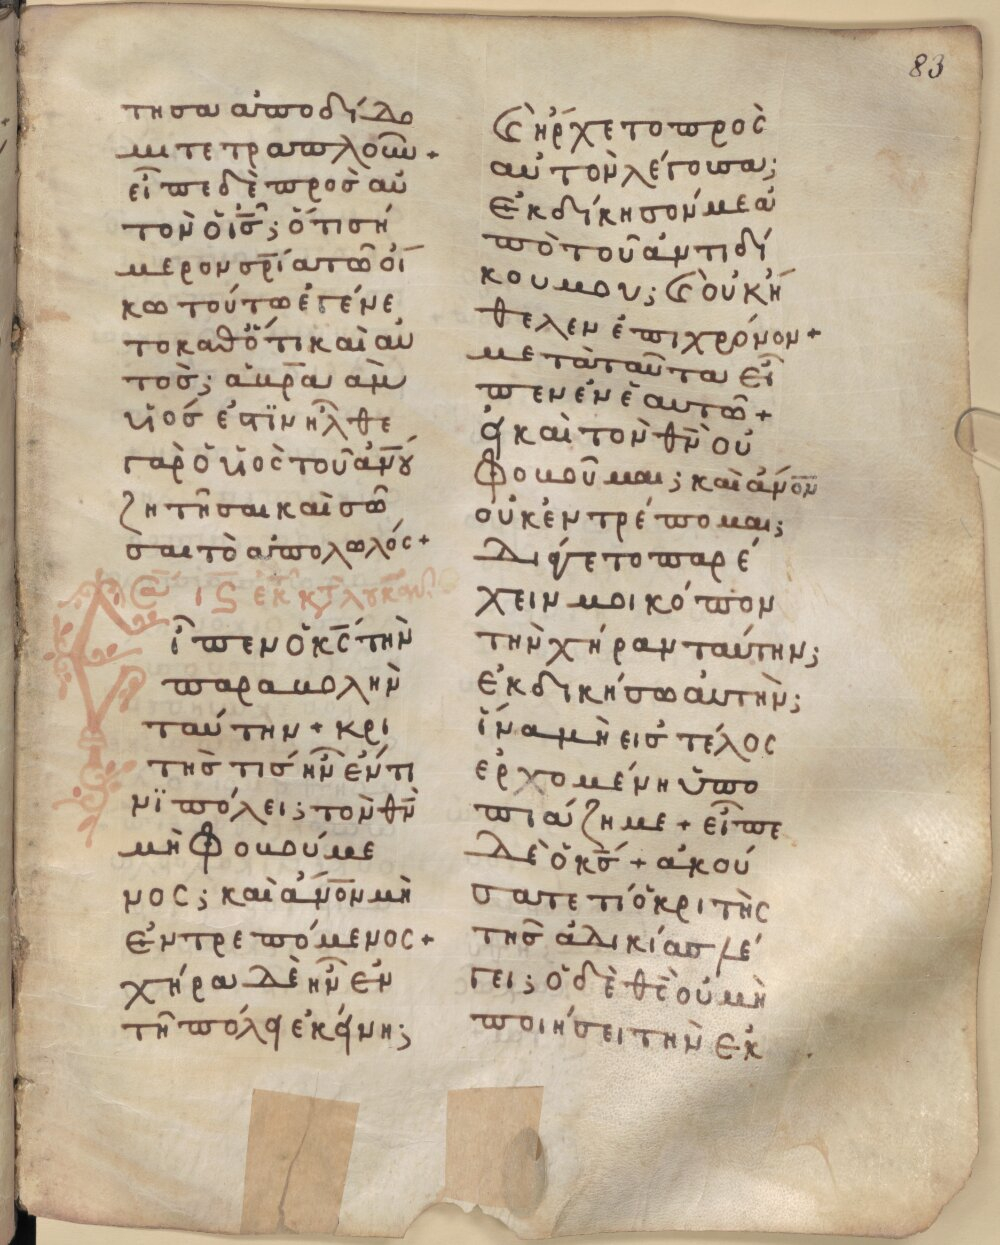 83
τησα ἀποδίδω
μι τετραπλοῦν +
εἶπε δὲ πρὸς αὐ
τὸν ὁ ἰς̅; ὅτι σή
μερον σρ̅ία τῶ οἴ
κω τούτω ἐγένε
το καθ ὅτι καὶ αὐ
τὸς; ἀβρ̅αὰμ
υἱός ἐστὶν ἦλθε
γὰρ ὁ υἱὸς τοῦ ἀν̅ου
ζητῆσαι καὶ σῶ
σαι τὸ ἀπολωλός +
εἶπεν ὁ κς̅ τὴν
παραβολὴν
ταύτην + κρι
τὴς τις ἦν ἔν τι
νι πόλει; τὸν θν̅
μὴ φοβούμε
νος; καὶ ἀν̅ον μὴ
ἐντρεπόμενος +
χήρα δὲ ἦν ἐν
τῆ πόλει ἐκείνη;
καὶ ἤρχετο πρὸς
αὐτὸν λέγουσα;
ἐκδίκησόν με ἀ
πὸ τοῦ ἀντιδί
κου μου; καὶ οὐκ ἠ
θελεν ἐπι χρόνον +
μετὰ ταῦτα εἶ
πεν ἐν ἑαυτῶ +
εἰ καὶ τὸν θν̅ οὐ
φοβοῦμαι; καὶ ἀν̅ον
οὐκ ἐντρέπομαι;
διά γε τὸ παρέ
χειν μοι κόπον
τὴν χήραν ταύτην;
ἐκδικήσω αὐτὴν;
ἵνα μὴ εἰς τέλος
ἐρχομένη ὑπο
πιάζη με + εἶπε
δὲ ὁ κς̅ + ἀκού
σατε τί ὁ κριτὴς
τῆς ἀδικίας λέ
γει; ὁ δὲ θς̅ οὐ μὴ
ποιήσει τὴν ἐκ